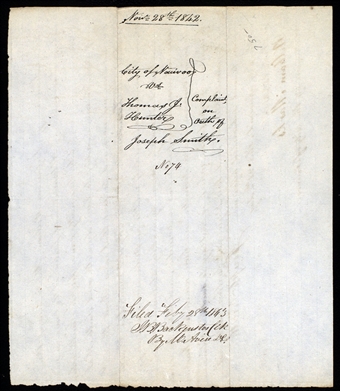 Nov. 28th 1842.
City of Nauvoo
vs
Thomas J.
Hunter
Complaint,
on
Oath of
Joseph Smith,
No 74
Filed Feby 28th 1843
Clk
By